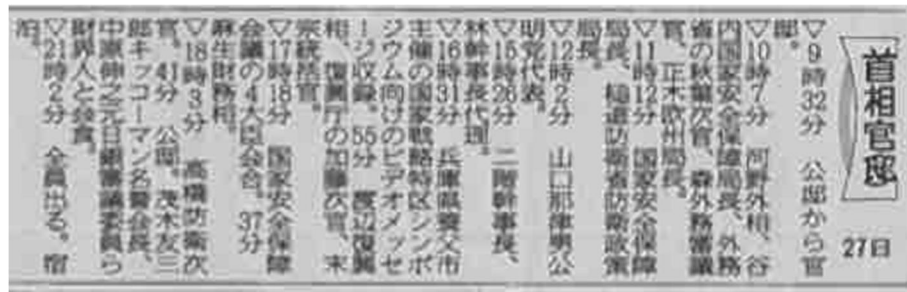 首相官邸
27日
▽9時32分　公邸から官
邸。
▽10時7分　河野外相、谷
内国家安全保障局長、外務
省の秋葉次官、森外務審議
官、正木欧州局長。
▽11時12分　国家安全保障
局長、槌道防衛省防衛政策
局長。
▽12時2分　山口那津男公
明党代表。
▽15時26分　二階幹事長、
林幹事長代理。
▽16時31分　兵庫県養父市
主催の国家戦略特区シンポ
ジウム向けのビデオメッセ
ージ収録。55分　渡辺復興
相、復興庁の加藤次官、末
宗統括官。
▽17時18分　国家安全保障
会議の4大臣会合。37分
麻生財務相。
▽18時3分　高橋防衛次
官。41分　公邸。茂木友三
郎キッコーマン名誉会長、
中原伸之元日銀審議委員ら
財界人と会食。
▽21時2分　全員出る。宿
泊。